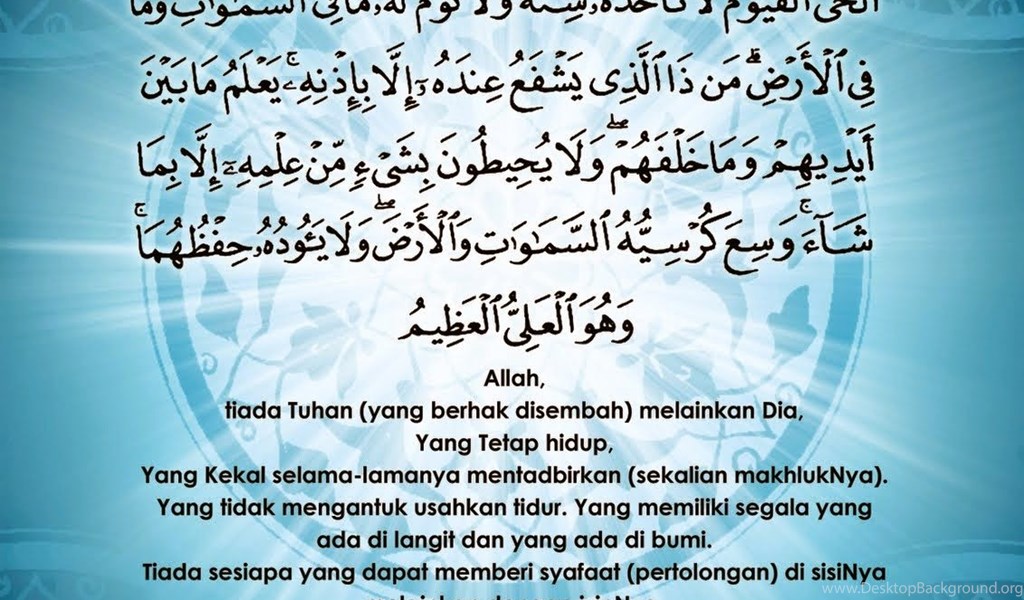 الْحَيُّ الْقَيُّومُ لَا تَأْخُذُهُ سِنَةٌ وَلَا نَوْمٌ لَهُ مَا فِي السَّمَاوَاتِ وَمَا
فِي ٱلْأَرْضِ ۗ مَن ذَا ٱلَّذِي يَشْفَعُ عِندَهُۥٓ إِلَّا بِإِذْنِهِۦ ۚ يَعْلَمُ مَا بَيْنَ
أَيْدِيهِمْ وَمَا خَلْفَهُمْ ۖ وَلَا يُحِيطُونَ بِشَىْءٍ مِّنْ عِلْمِهِۦٓ إِلَّا بِمَا
شَآءَ ۚ وَسِعَ كُرْسِيُّهُ ٱلسَّمَـٰوَٰتِ وَٱلْأَرْضَ ۖ وَلَا يَـُٔودُهُۥ حِفْظُهُمَا ۚ
وَهُوَ ٱلْعَلِىُّ ٱلْعَظِيمُ
Allah,
tiada Tuhan (yang berhak disembah) melainkan Dia,
Yang Tetap hidup,
Yang Kekal selama-lamanya mentadbirkan (sekalian makhlukNya).
Yang tidak mengantuk usahkan tidur. Yang memiliki segala yang
ada di langit dan yang ada di bumi.
Tiada sesiapa yang dapat memberi syafaat (pertolongan) di sisiNya
www.DesktopBackground.org